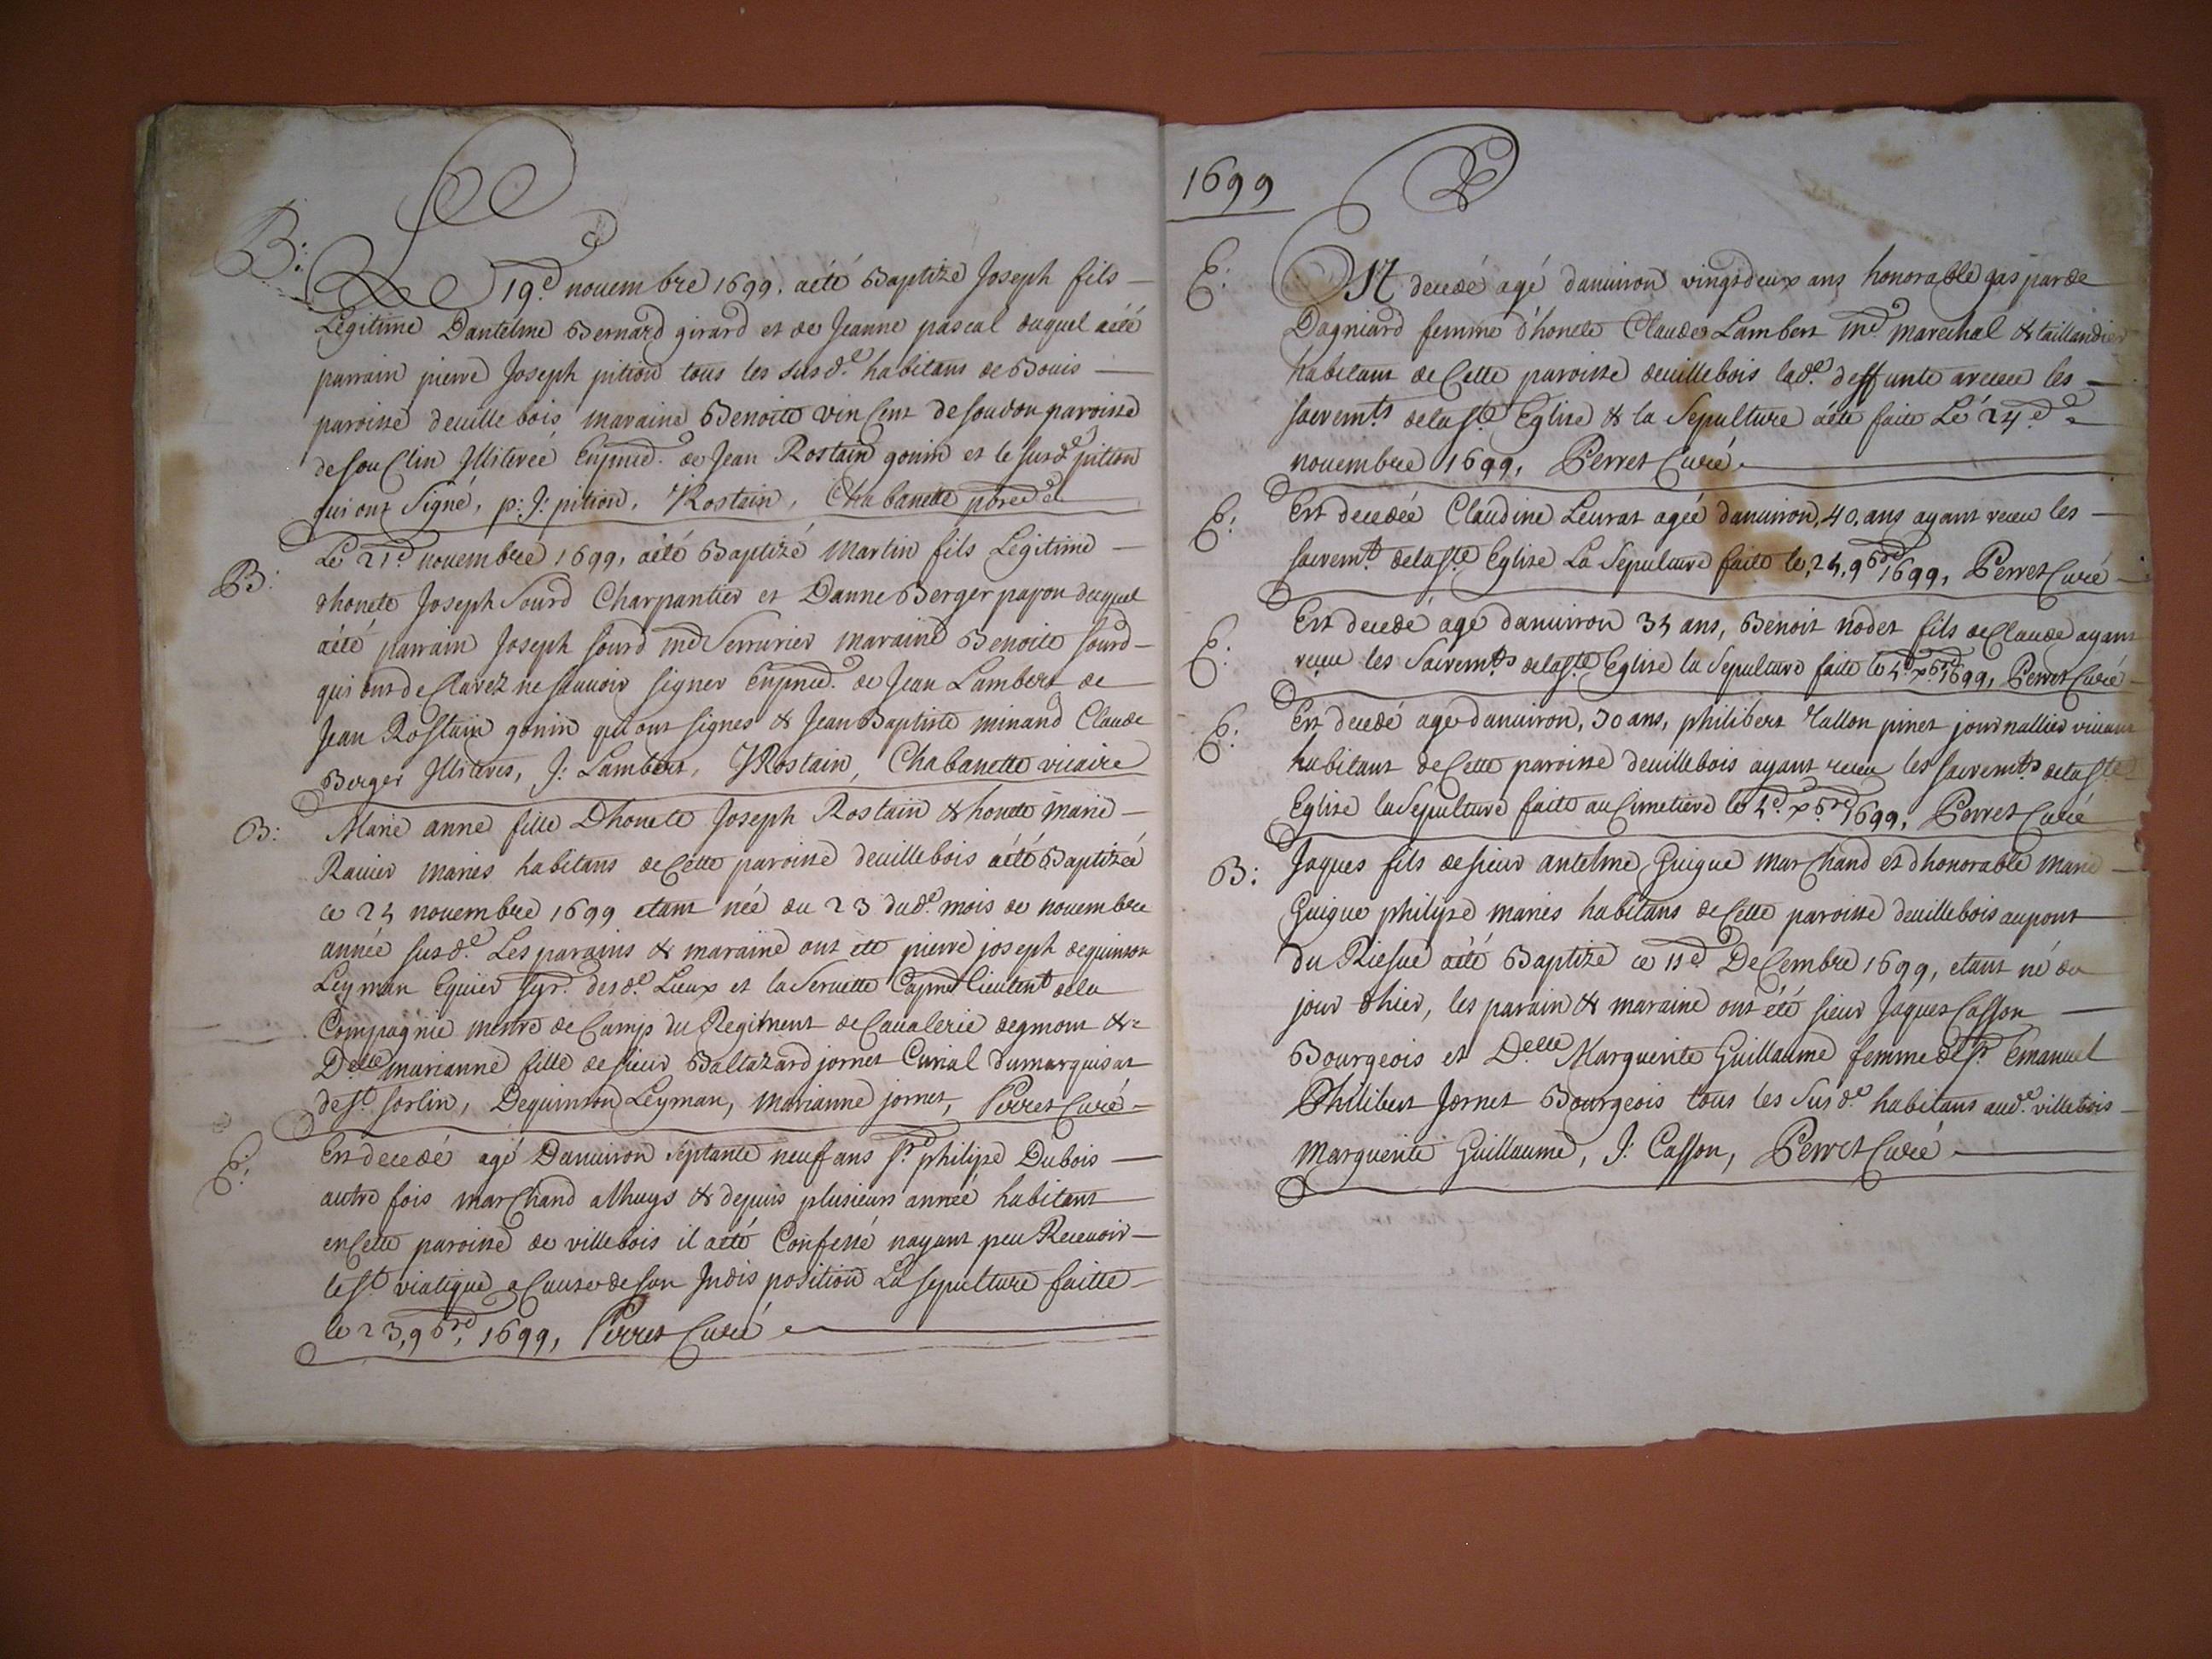 B:
Le 19.e novembre 1699. aété Baptizé Joseph fils
Legitime Dantelme Bernard girard et de Jeanne pascal duquel aété
parrain pierre Joseph pition tous les susd.e habitans de Bouis
paroisse deuillebois maraine Benoite vincent de soudon paroisse
de souclin Illiterée Enpnce. de Jean Rostain gonin et le susd.e pition
qui ont signé, p: J: pition, JRostain, Chabanette
B:
Le 21.e novembre 1699, aété Baptizé Martin fils Legitime
dhonete Joseph Sourd Charpantier et Danne Berger pajon duquel
aété parrain Joseph sourd md Serrurier maraine Benoite sourd
qui ont declarez ne sauoir signer Enpnce. de Jean Lambert de
Jean Rostain gonin qui ont signes & Jean Baptiste minand Claude
Berger Illiteres, J: Lambert, JRostain, Chabanette vicaire
B:
Marie anne fille Dhonete Joseph Rostain & honete Marie
Rauier maries habitans de Cette paroisse deuillebois aété Baptizée
ce 24 novembre 1699 etant née du 23 dud.e mois de novembre
année susd.e Les parains & maraine ont ete pierre joseph dequinson
Leyman Equier sgr. desd.e Lieux et la Seruette Capne Lieutent dela
Compagnie mestre de Camp du Regiment de Caualerie degmont &
Delle marianne fille de sieur Baltazard jornet Curial dumarquisat
de st sorlin, Dequinson Leyman, Marianne jornet, Perret Curé
E:
Est decedé agé Danuiron septante neuf ans sr philipe Dubois
autre fois marchand alhuys & depuis plusieurs année habitant
en Cette paroisse de villebois il aété Confessé nayant peu Receuoir
le st viatique a Cause de son Indisposition La sepulture faitte
le 23, 9bre, 1699, Perret Curé
1699
E:
Est decedé agé danuiron vingsdeux ans honorable gasparde
Dagniard femme d'honete Claude Lambert md. marechal & taillandier
habitant de Cette paroisse deuillebois lad.e deffunte areceu les
sacremts dela ste Eglise & la Sepulture aété faite Le 24.e
novembre 1699, Perret Curé
E:
Est decedée Claudine Leurat agée danuiron, 40, ans ayant receu les
sacremt. dela ste Eglise La Sepulture faite le, 24, 9bre 1699, Perret Curé
E:
Est decedé agé danuiron 34 ans, Benoit nodet fils de Claude ayant
receu les Sacremts dela ste Eglise la Sepulture faite le 4.e xbre 1699, Perret Curé
E:
Est decedé agé danuiron, 30 ans, philibert Vallon pinet journallier viuant
habitant de Cette paroisse deuillebois ayant receu les sacremts dela ste
Eglise la Sepulture faite au Cimetiere le 4.e xbre 1699, Perret Curé
B:
Jaques fils de sieur antelme Guigue marchand et dhonorable marie
Guigue philipe maries habitans de Cette paroisse deuillebois aupont
du Riesue aété Baptizé ce 11.e Decembre 1699, etant né du
jour dhier, les parain & maraine ont été sieur Jaques Casson
Bourgeois et Delle Marguerite Guillaume femme de sr. Emanuel
Philibert Jornet Bourgeois tous les susd.e habitans aud.e villebois
Marguerite Guillaume, J: Casson, Perret Curé